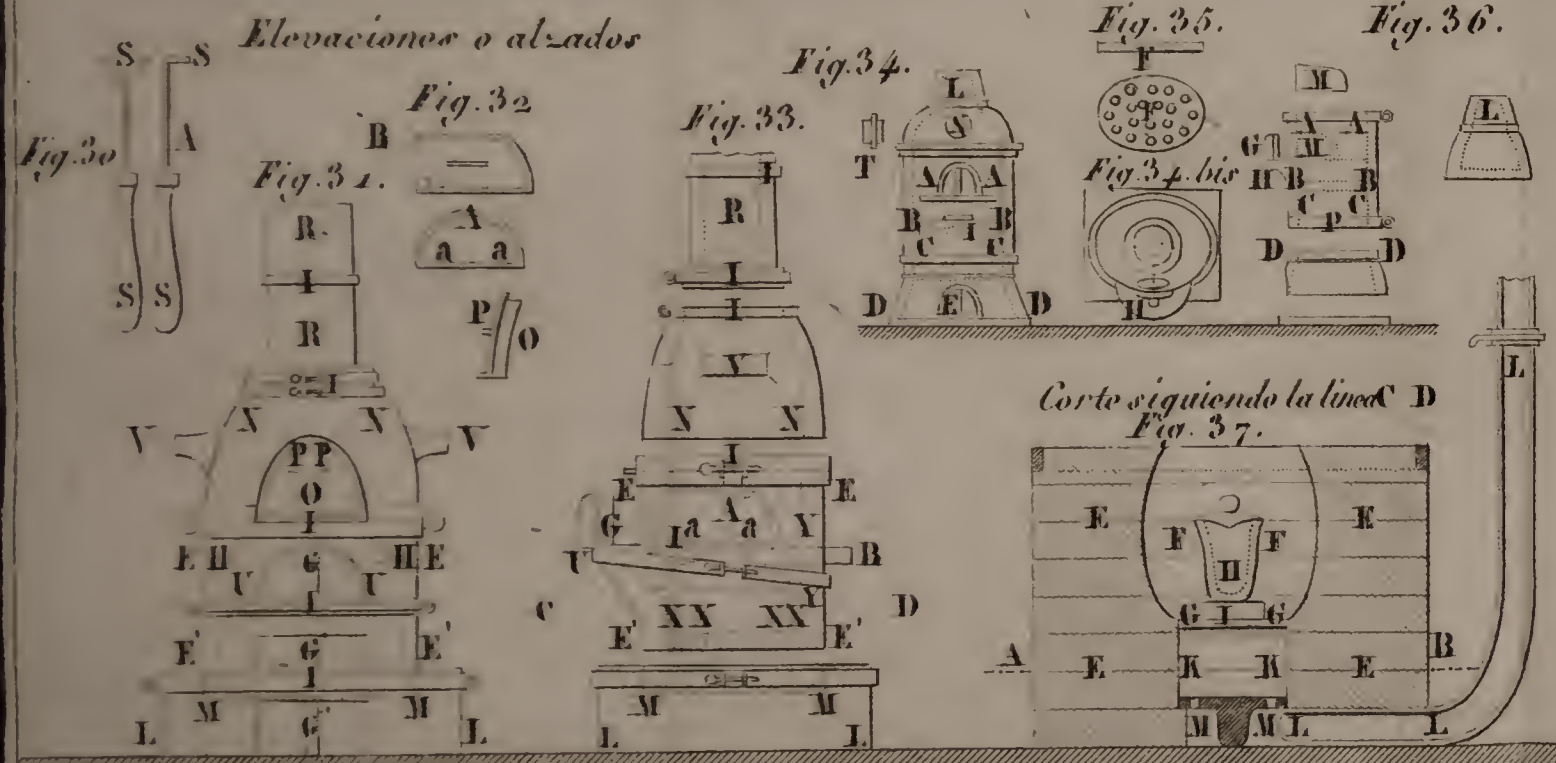 Elevaciones o alzados
Fig. 30
S S
A
S S
Fig. 31.
R
I
R
I
X X
V V
P P
O
I
E H G H E
U U
I
E' G E'
I
M M
L G' L
Fig. 32
B
A
a a
P O
Fig. 33.
I
R
I
I
V
X X
I
E E
A
G I a a Y
U B
Y
C X X X X D
E' E'
M M
L L
Fig. 34.
L
S
T
A A
B I B
C C
D E D
Fig. 35.
F
Fig. 34. bis
H
Fig. 36.
M
A A
G M
H B B
C C
P
D D
L
Corte siguiendo la linea C D
Fig. 37.
E E
F F
H
G I G
A B
E K K E
M M L L
L